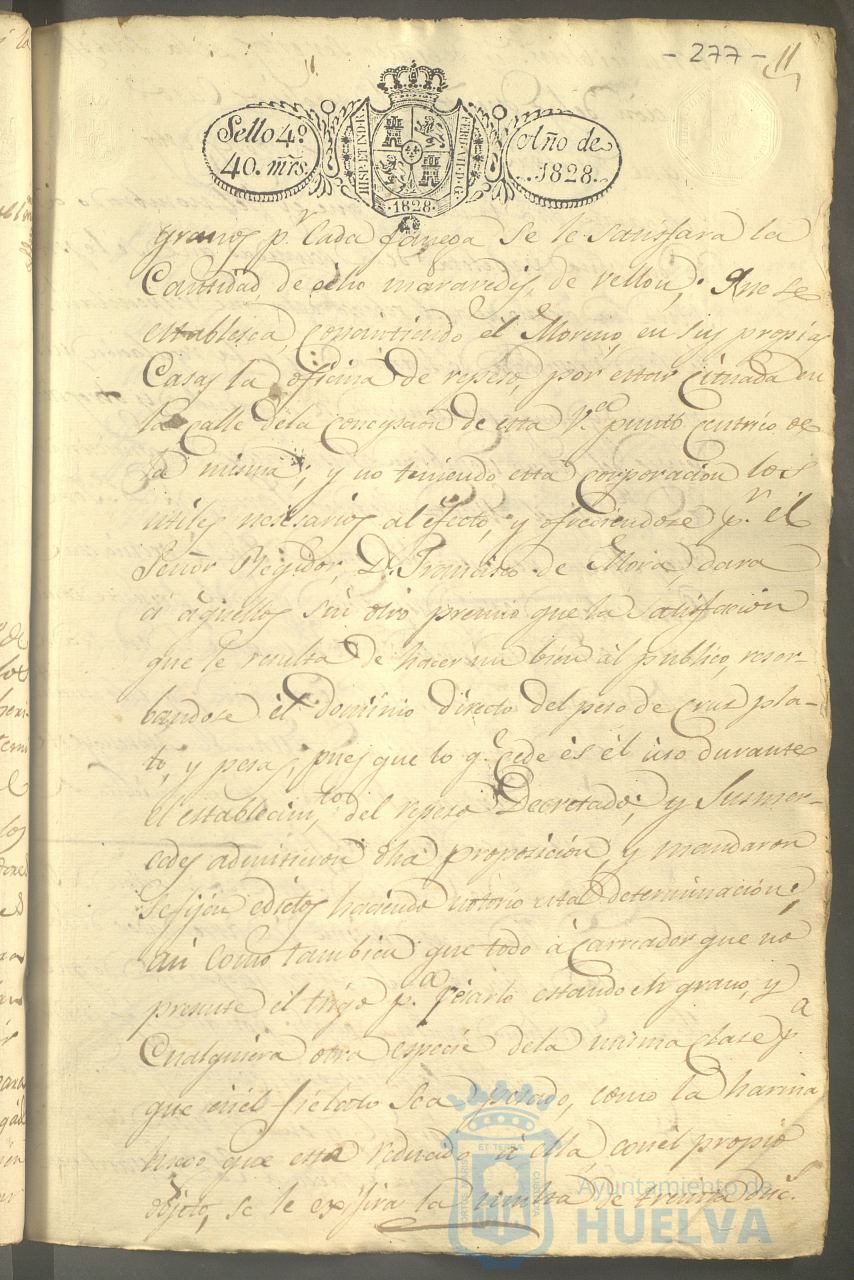 - 277 - 11
Sello 4º.
40. mrs.
HISP. ET IND. R.
FERD. VII. D. G.
.1828.
Año de
..1828..
granos p.r Cada fanega Se le satisfara la
Cantidad de ocho maravedis de vellon; Que se
establesca, concintiendo él Moreno, en sus propias
Casas la oficina de repeso, por estar Cituada en
la calle dela Concepcion de esta V.ª punto centrico de
la misma; y no teniendo esta corporacion los
utiles nesesarios al efecto, y ofreciendose p.r él
Señor Regidor, D. Francisco de Mora, dara
á aquellos sin otro premio que la Satisfacion
que le resulta de hacer un bien al publico, reser-
bandose él dominio directo del peso de Cruz pla-
to, y pesas, pues que lo q.e cede és él uso durante
el establecim.to del repeso Decretado; y Susmer-
cedes admitieron dha proposicion, y mandaron
Se fijen edictos haciendo notorio esta determinacion;
asi como tambien que todo acarreador que no
presente él trigo p.a pesarlo estando en grano, y
Cualquiera otra especie dela misma clase p.a
que en él fielato sea pesado, como la harina
luego que esta reducido á ella, con él propio
objeto, se le exijira la multa de treinta duc.s
Ayuntamiento de
HUELVA